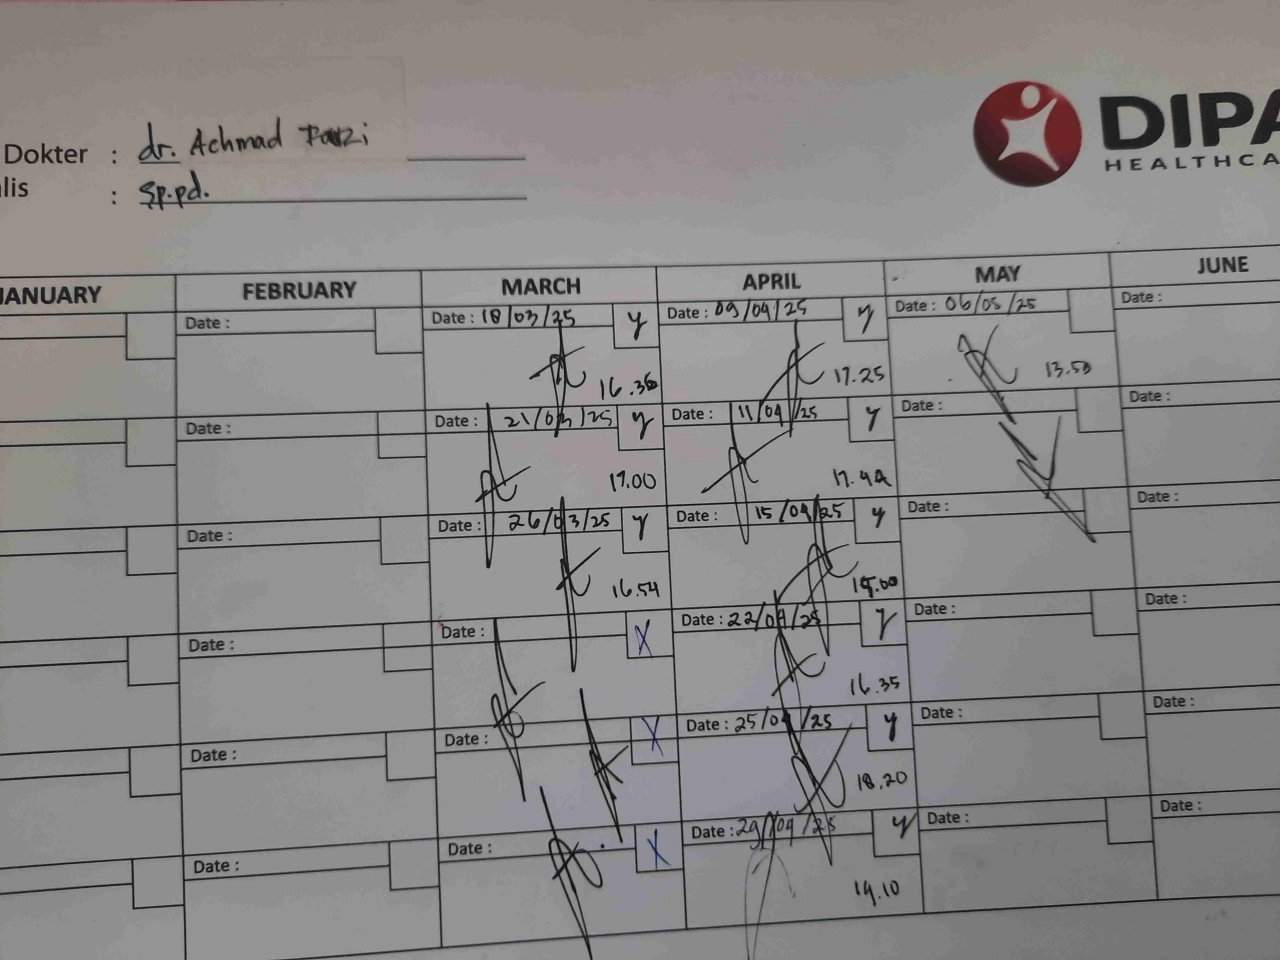 Dokter : dr. Achmad Fauzi
alis : Sp.pd.
DIPA
HEALTHCA
JANUARY FEBRUARY MARCH APRIL MAY JUNE
Date : Date : 18/03/25 y Date : 09/04/25 y Date : 06/05/25 Date :
16.36 17.25 13.50
Date : Date : 21/03/25 y Date : 11/04/25 y Date : Date :
17.00 17.42
Date : Date : 26/03/25 y Date : 15/04/25 y Date : Date :
16.54
Date : Date : X Date : 22/04/25 y Date : Date :
16.35
Date : Date : X Date : 25/04/25 y Date : Date :
18.20
Date : Date : X Date : 29/04/25 y Date : Date :
19.10